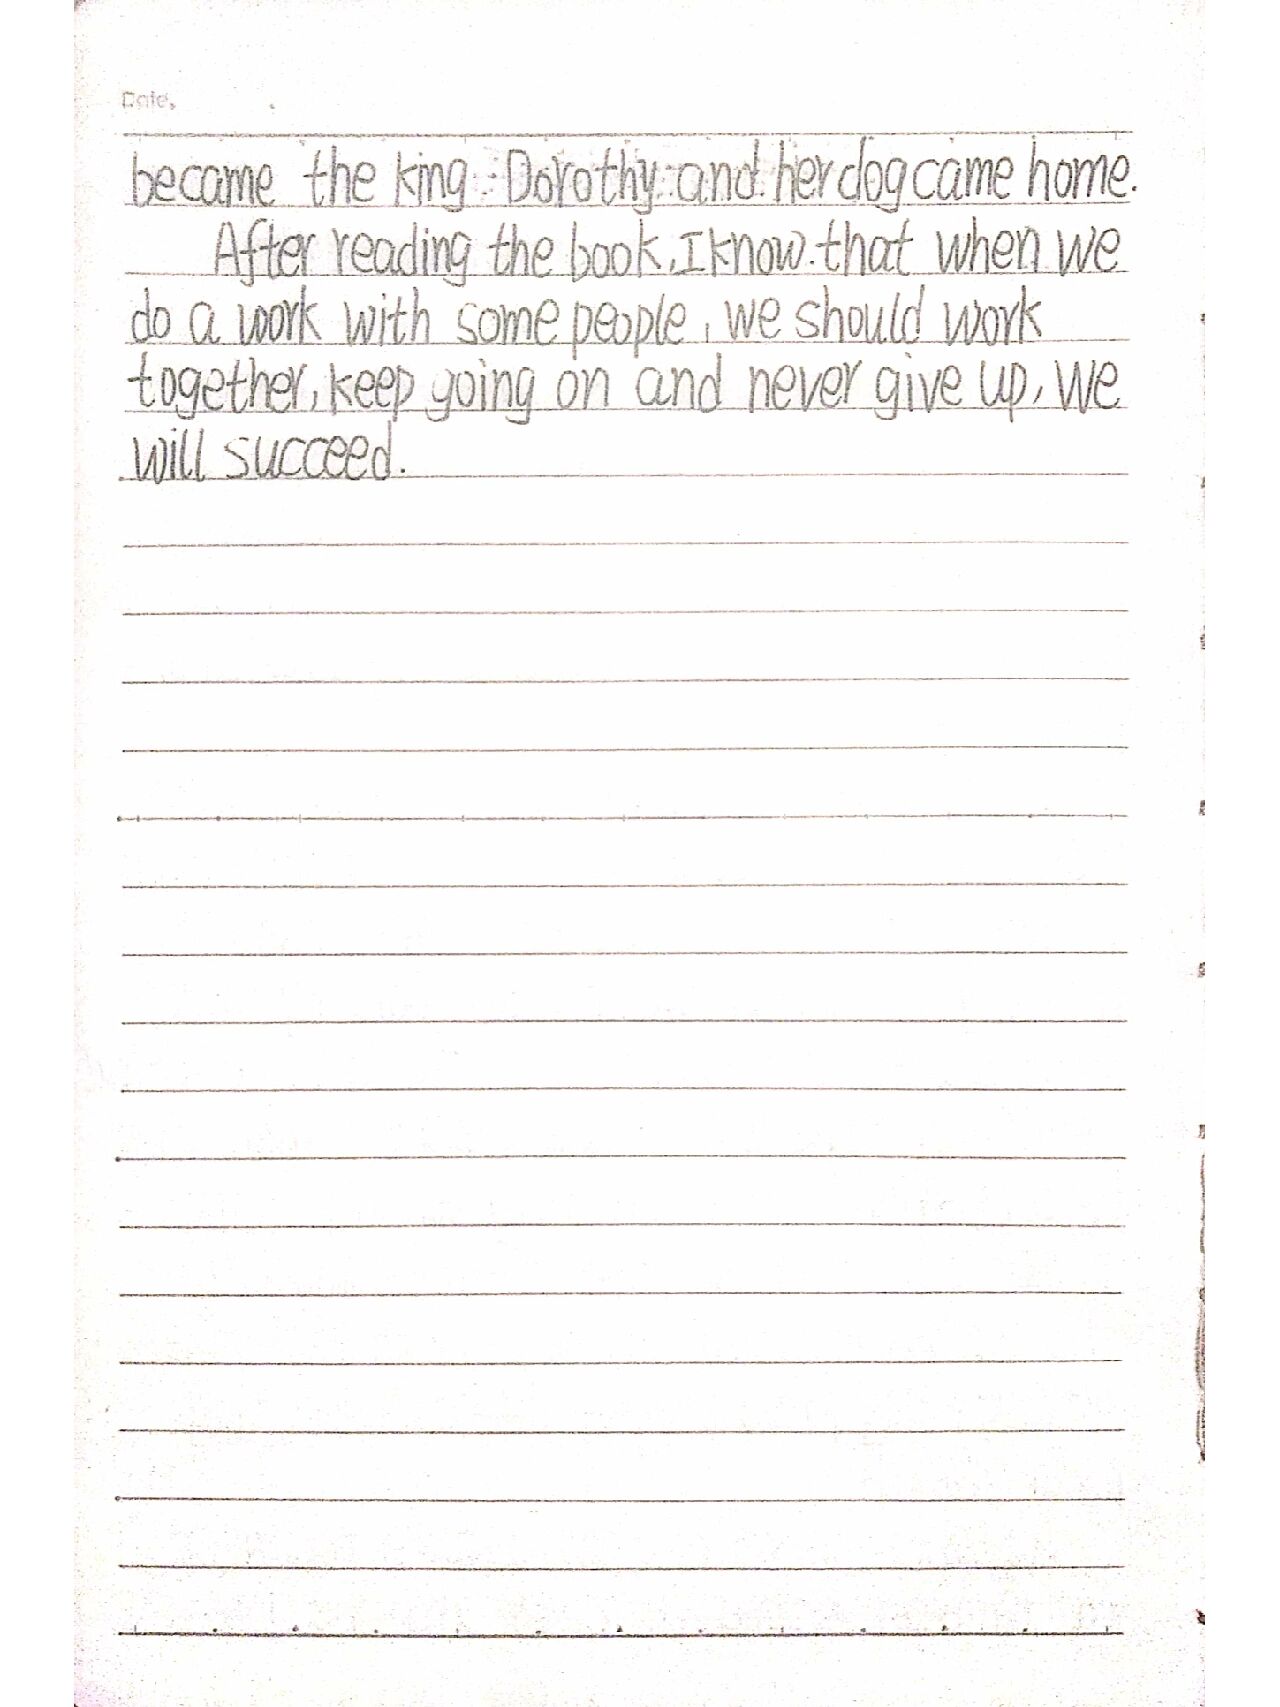 Date.
became the king. Dorothy and her dog came home.
After reading the book, I know that when we
do a work with some people, we should work
together, keep going on and never give up, we
will succeed.